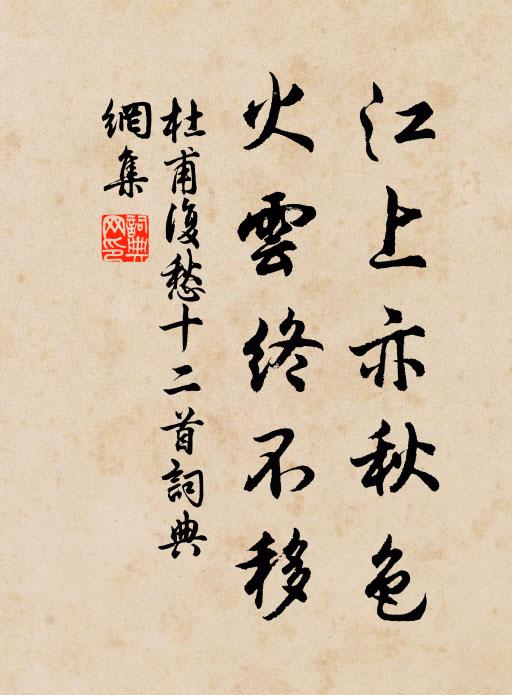 江上亦秋色
火雲終不移
杜甫復愁十二首詞典
網集
詞典
网印